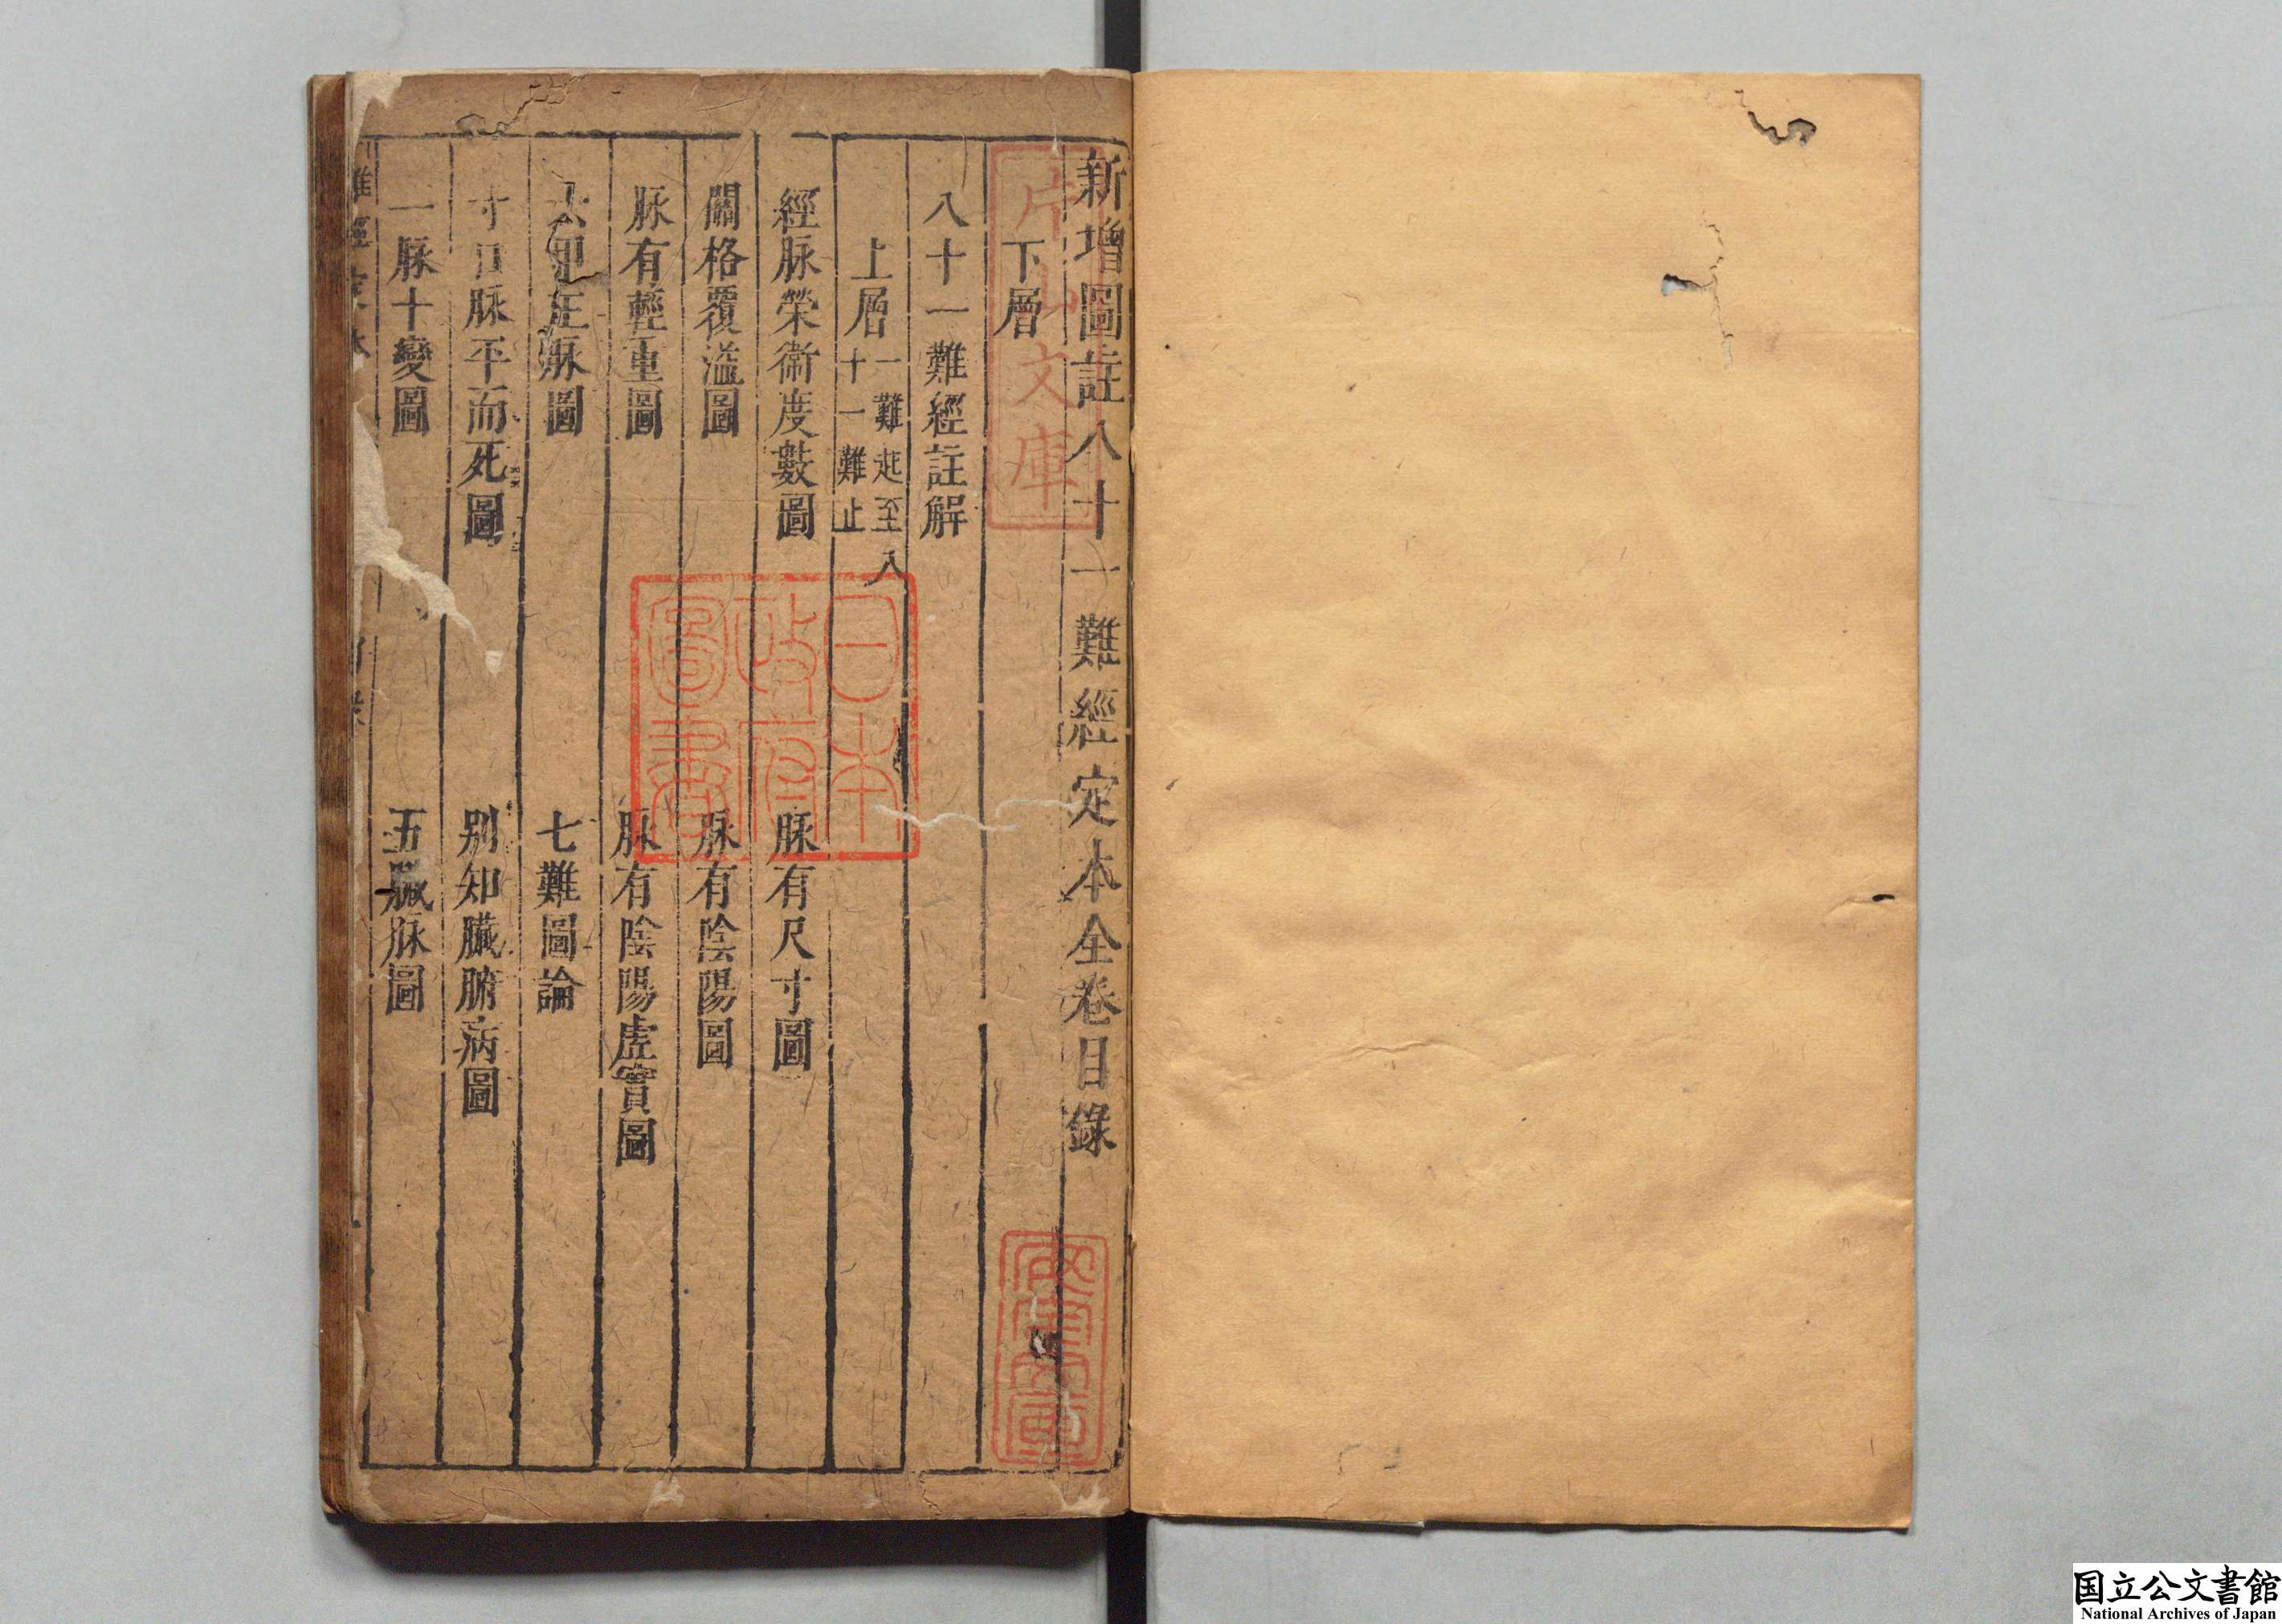 新增圖註八十一難經定本全卷目錄
下層
八十一難經註解
上層 一難起至八十一難止
經脉榮衞度數圖 脉有尺寸圖
關格覆溢圖 脉有陰陽圖
脉有輕重圖 脉有陰陽虛實圖
王脉圖 七難圖論
寸口脉平而死圖 別知臟腑病圖
一脉十變圖 五臟脉圖
片山文庫
日本政府圖書
文庫
国立公文書館
National Archives of Japan